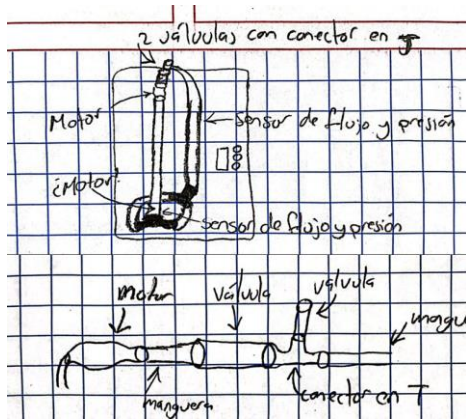 2 válvulas con conector en J
Motor
sensor de flujo y presión
¿Motor?
sensor de flujo y presión
motor
válvula
válvula
mangu
manguera
conector en T